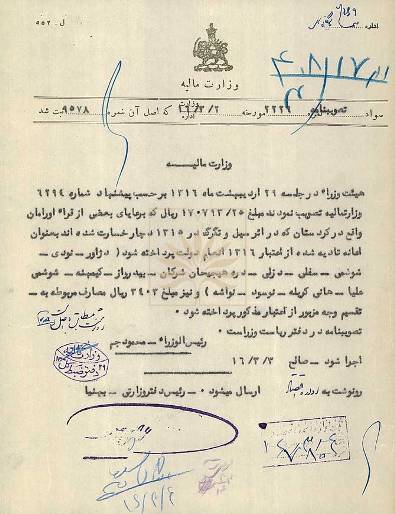 وزارت مالیه
سواد تصویبنامه نمره ۲۲۲۹ مورخه ۱۶/۳/۲ اداره که اصل آن نمره ۹۵۷۸ ثبت شد
وزارت مالیـــه
هیئت وزراء در جلسه ۲۹ اردیبهشت ماه ۱۳۱۶ بر حسب پیشنهاد شماره ۶۲۹۴
وزارتمالیه تصویب نمودند مبلغ ۱۷۰۷۹۳/۲۵ ریال که برعایای بعضی از قراء اورامان
واقع در کردستان که در اثر سیل و تگرگ در ۱۳۱۵ دچار خسارت شده اند بعنوان
اعانه تادیه شده از اعتبار ۱۳۱۶ انعام دولت پرداخته شود ( دزاور ـ نودی ـ
شوشمی ـ سفلی ـ دزلی ـ دره هیجیجان شرکان ـ بیدرواز ـ کیمنه ـ شوشمی
علیا ـ هانی کرمله ـ نوسود ـ نواشه ) و نیز مبلغ ۳۴۰۳ ریال مصارف مربوطه به ـ
تقسیم وجه مزبور از اعتبار مذکور پرداخته شود .
تصویبنامه در دفتر ریاست وزراست .
رئیس الوزراء ـ محمود جم
اجرا شود ـ صالح ۱۶/۳/۳
رونوشت به اداره ارسال میشود . رئیس دفتر وزارتی ـ بهنیا